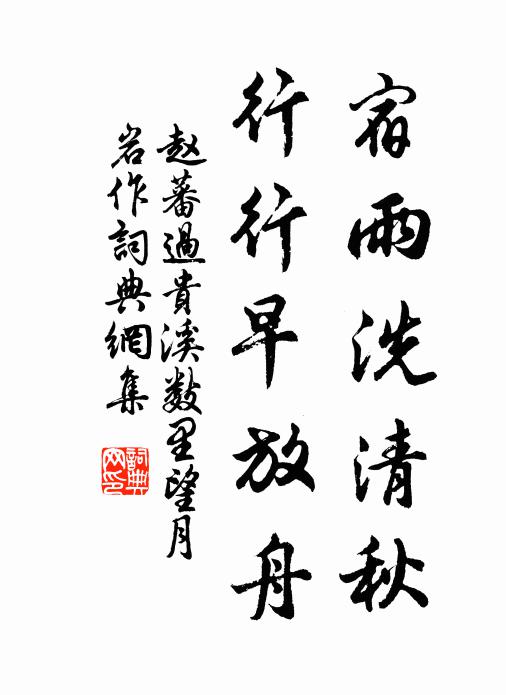 宿雨洗清秋
行行早放舟
赵蕃過貴溪数里望月
岩作詞典網集
詞典网印